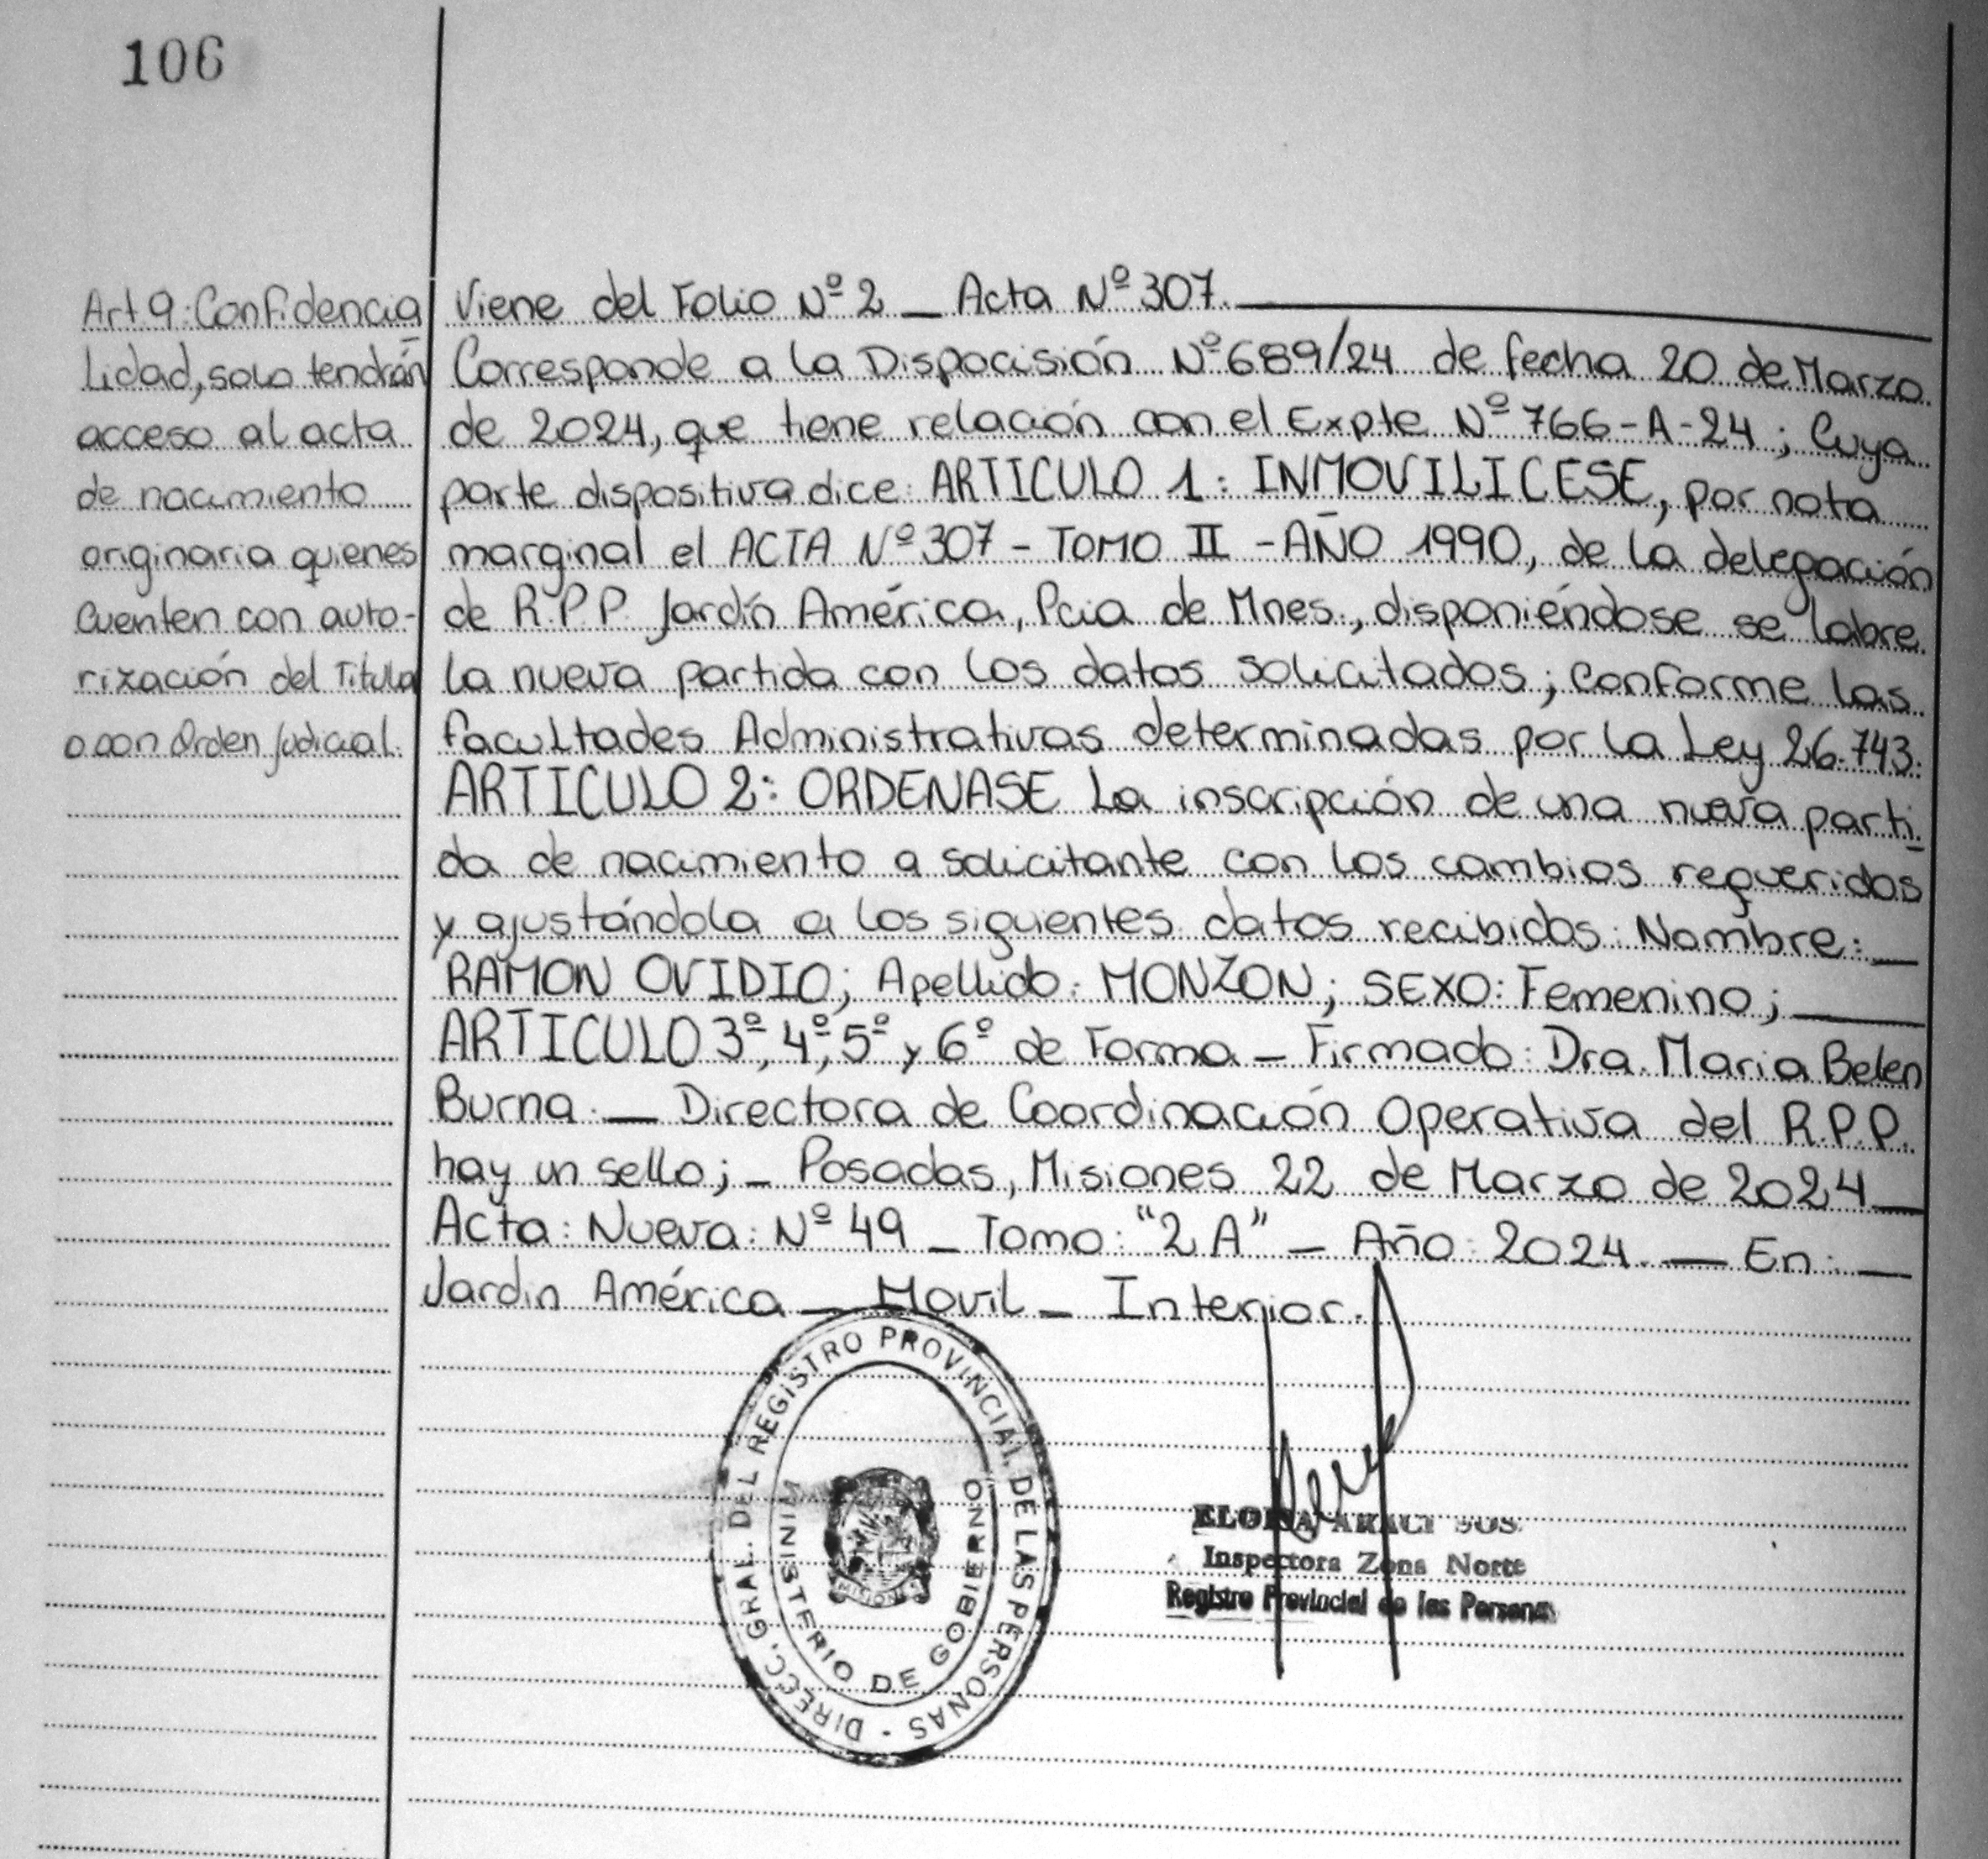 106
Art 9: Confidencia
Lidad, solo tendrán
acceso al acta
de nacimiento
originaria quienes
Cuenten con auto-
rización del Titula
o con Orden Judicial.
Viene del Folio Nº 2 _ Acta Nº 307.
Corresponde a la Dispocisión Nº 689/24 de fecha 20 de Marzo
de 2024, que tiene relación con el Expte Nº 766-A-24; Cuya
parte dispositiva dice: ARTICULO 1: INMOVILICESE, por nota
marginal el ACTA Nº 307 - TOMO II - AÑO 1990, de la delegación
de R.P.P. Jardín América, Pcia de Mnes., disponiéndose se labre
la nueva partida con los datos solicitados; conforme las
facultades Administrativas determinadas por la Ley 26.743.
ARTICULO 2: ORDENASE La inscripción de una nueva parti
da de nacimiento a solicitante con los cambios requeridos
y ajustándola a los siguientes datos recibidos: Nombre: _
RAMON OVIDIO; Apellido: MONZON; SEXO: Femenino; _
ARTICULO 3º, 4º, 5º y 6º de Forma _ Firmado: Dra. Maria Belen
Burna. _ Directora de Coordinación Operativa del R.P.P.
hay un sello; _ Posadas, Misiones 22 de Marzo de 2024 _
Acta: Nueva: Nº 49 _ Tomo: "2 A" _ Año: 2024. _ En: _
Jardin América _ Movil _ Interior.
DIRECC. GRAL. DEL REGISTRO PROVINCIAL DE LAS PERSONAS -
MINISTERIO DE GOBIERNO
MISIONES
Inspectora Zona Norte
Registro Provincial de las Personas